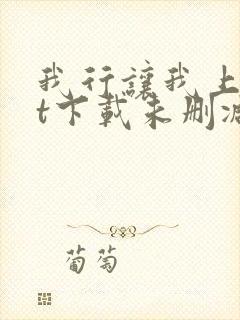 我行讓我上
t下載未刪減
葡萄